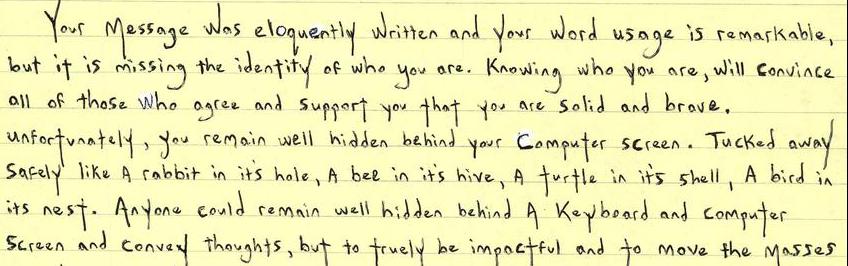 Your Message was eloquently written and your word usage is remarkable,
but it is missing the identity of who you are. Knowing who you are, will convince
all of those who agree and support you that you are solid and brave.
unfortunately, you remain well hidden behind your Computer screen. Tucked away
safely like A rabbit in it's hole, A bee in it's hive, A turtle in it's shell, A bird in
its nest. Anyone could remain well hidden behind A Keyboard and computer
Screen and convey thoughts, but to truely be impactful and to move the masses